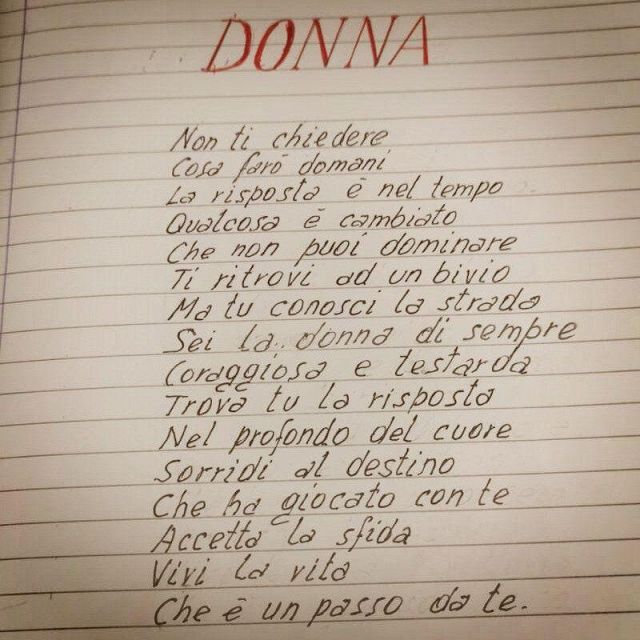 DONNA
Non ti chiedere
Cosa farō domani
La risposta ē nel tempo
Qualcosa ē cambiato
Che non puoi dominare
Ti ritrovi ad un bivio
Ma tu conosci la strada
Sei la donna di sempre
Coraggiosa e testarda
Trova tu la risposta
Nel profondo del cuore
Sorridi al destino
Che ha giocato con te
Accetta la sfida
Vivi la vita
Che ē un passo da te.